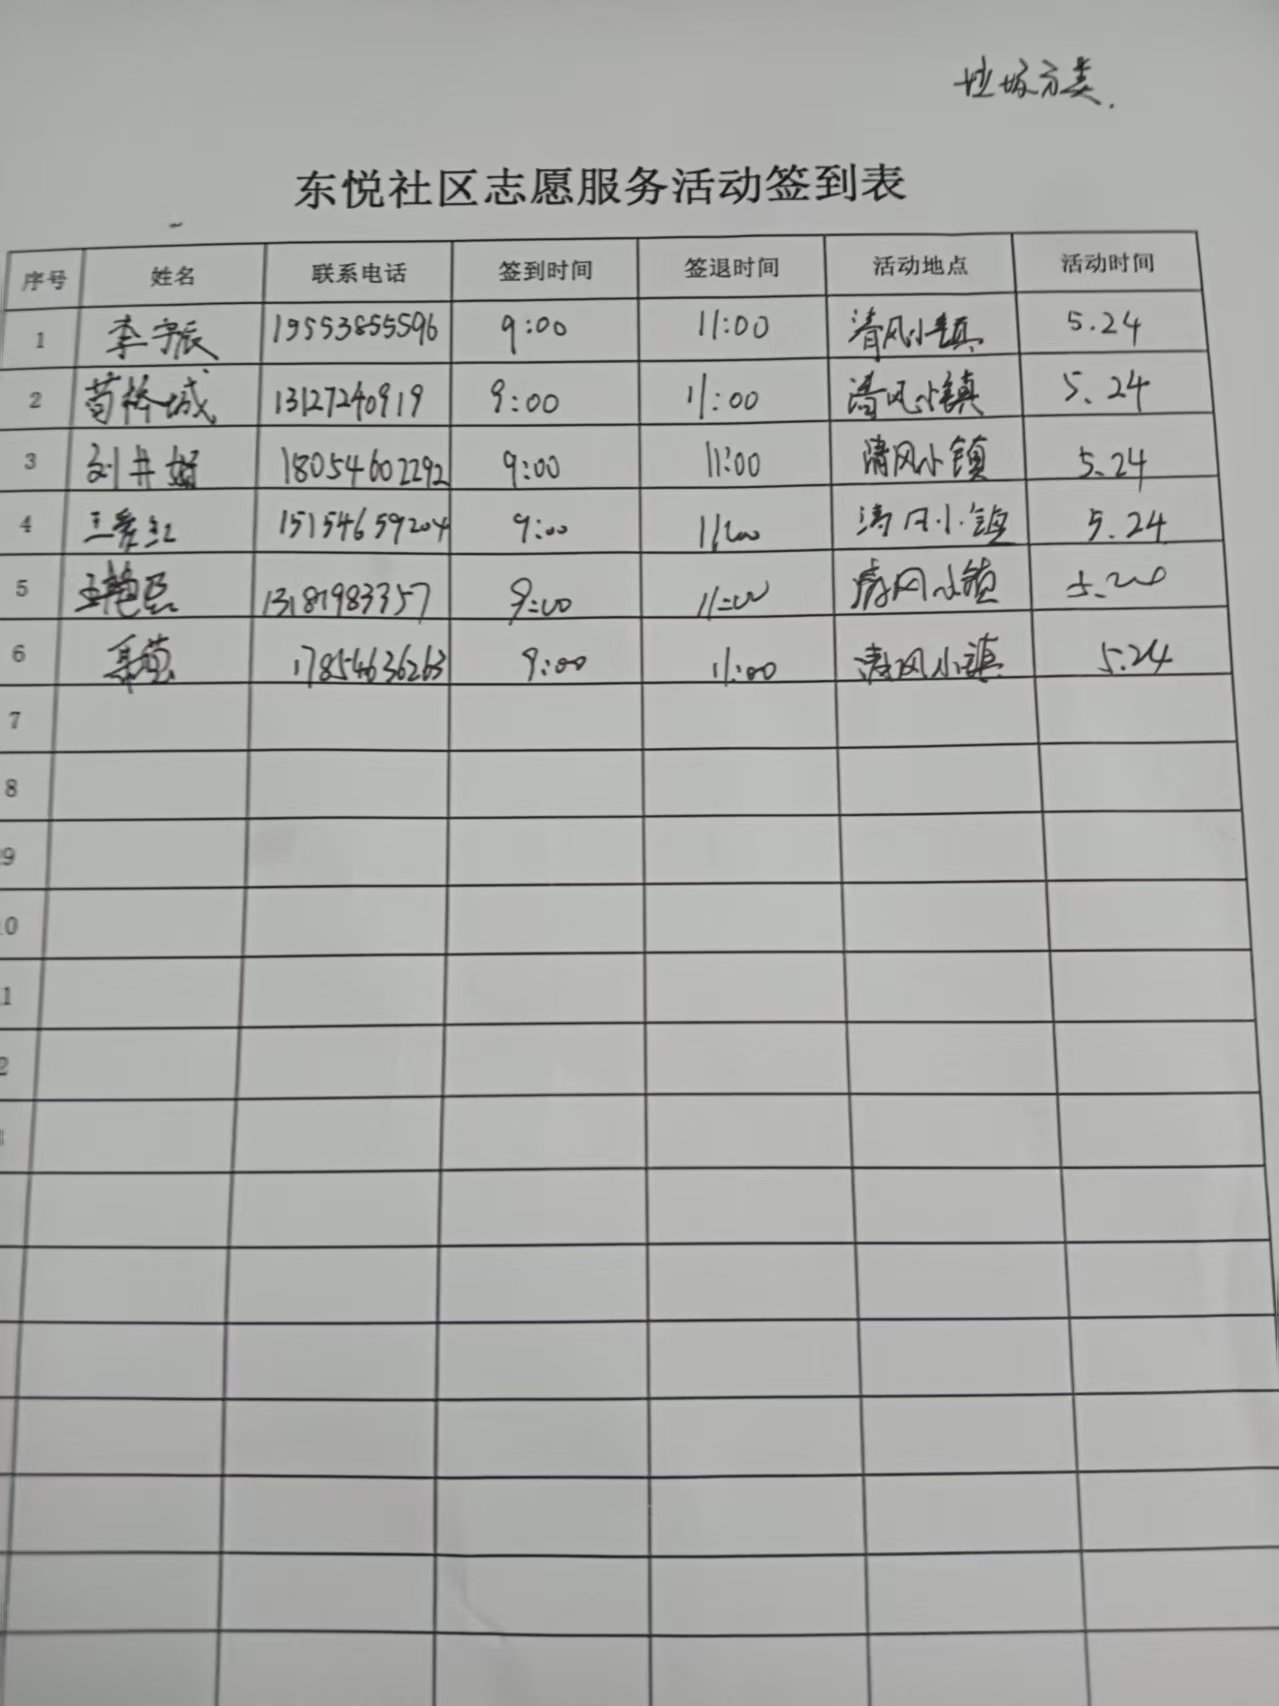 垃圾分类.
东悦社区志愿服务活动签到表
序号 姓名 联系电话 签到时间 签退时间 活动地点 活动时间
1 李宇辰 15553855596 9:00 11:00 清风小镇 5.24
2 13127240919 9:00 11:00 清风小镇 5.24
3 刘井娟 18054602292 9:00 11:00 清风小镇 5.24
4 王爱红 15154659204 9:00 11:00 清风小镇 5.24
5 13181983357 9:00 11:00 清风小镇 5.24
6 17854636263 9:00 11:00 清风小镇 5.24
7
8
9